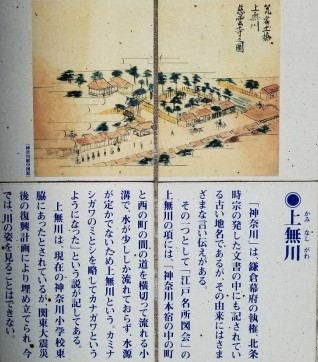 上無川
慈雲寺之圖
●上無川
かみなしがわ
「神奈川」は、鎌倉幕府の執権、北条
時宗の発した文書の中にも記されて
る古い地名であるが、その由来にはさま
ざまな言い伝えがある。
その一つとして「江戸名所図会」の
上無川の項には、「神奈川本宿の中の町
と西の町の間の道を横切って流れる小
溝で、水が少ししか流れておらず、水源
が定かでないため上無川という。カミナ
シガワのミとシを略してカナガワという
ようになった」という説が記してある。
上無川は、現在の神奈川小学校東
脇にあったとされているが、関東大震災
後の復興計画により埋め立てられ、今
では、川の姿を見ることはできない。